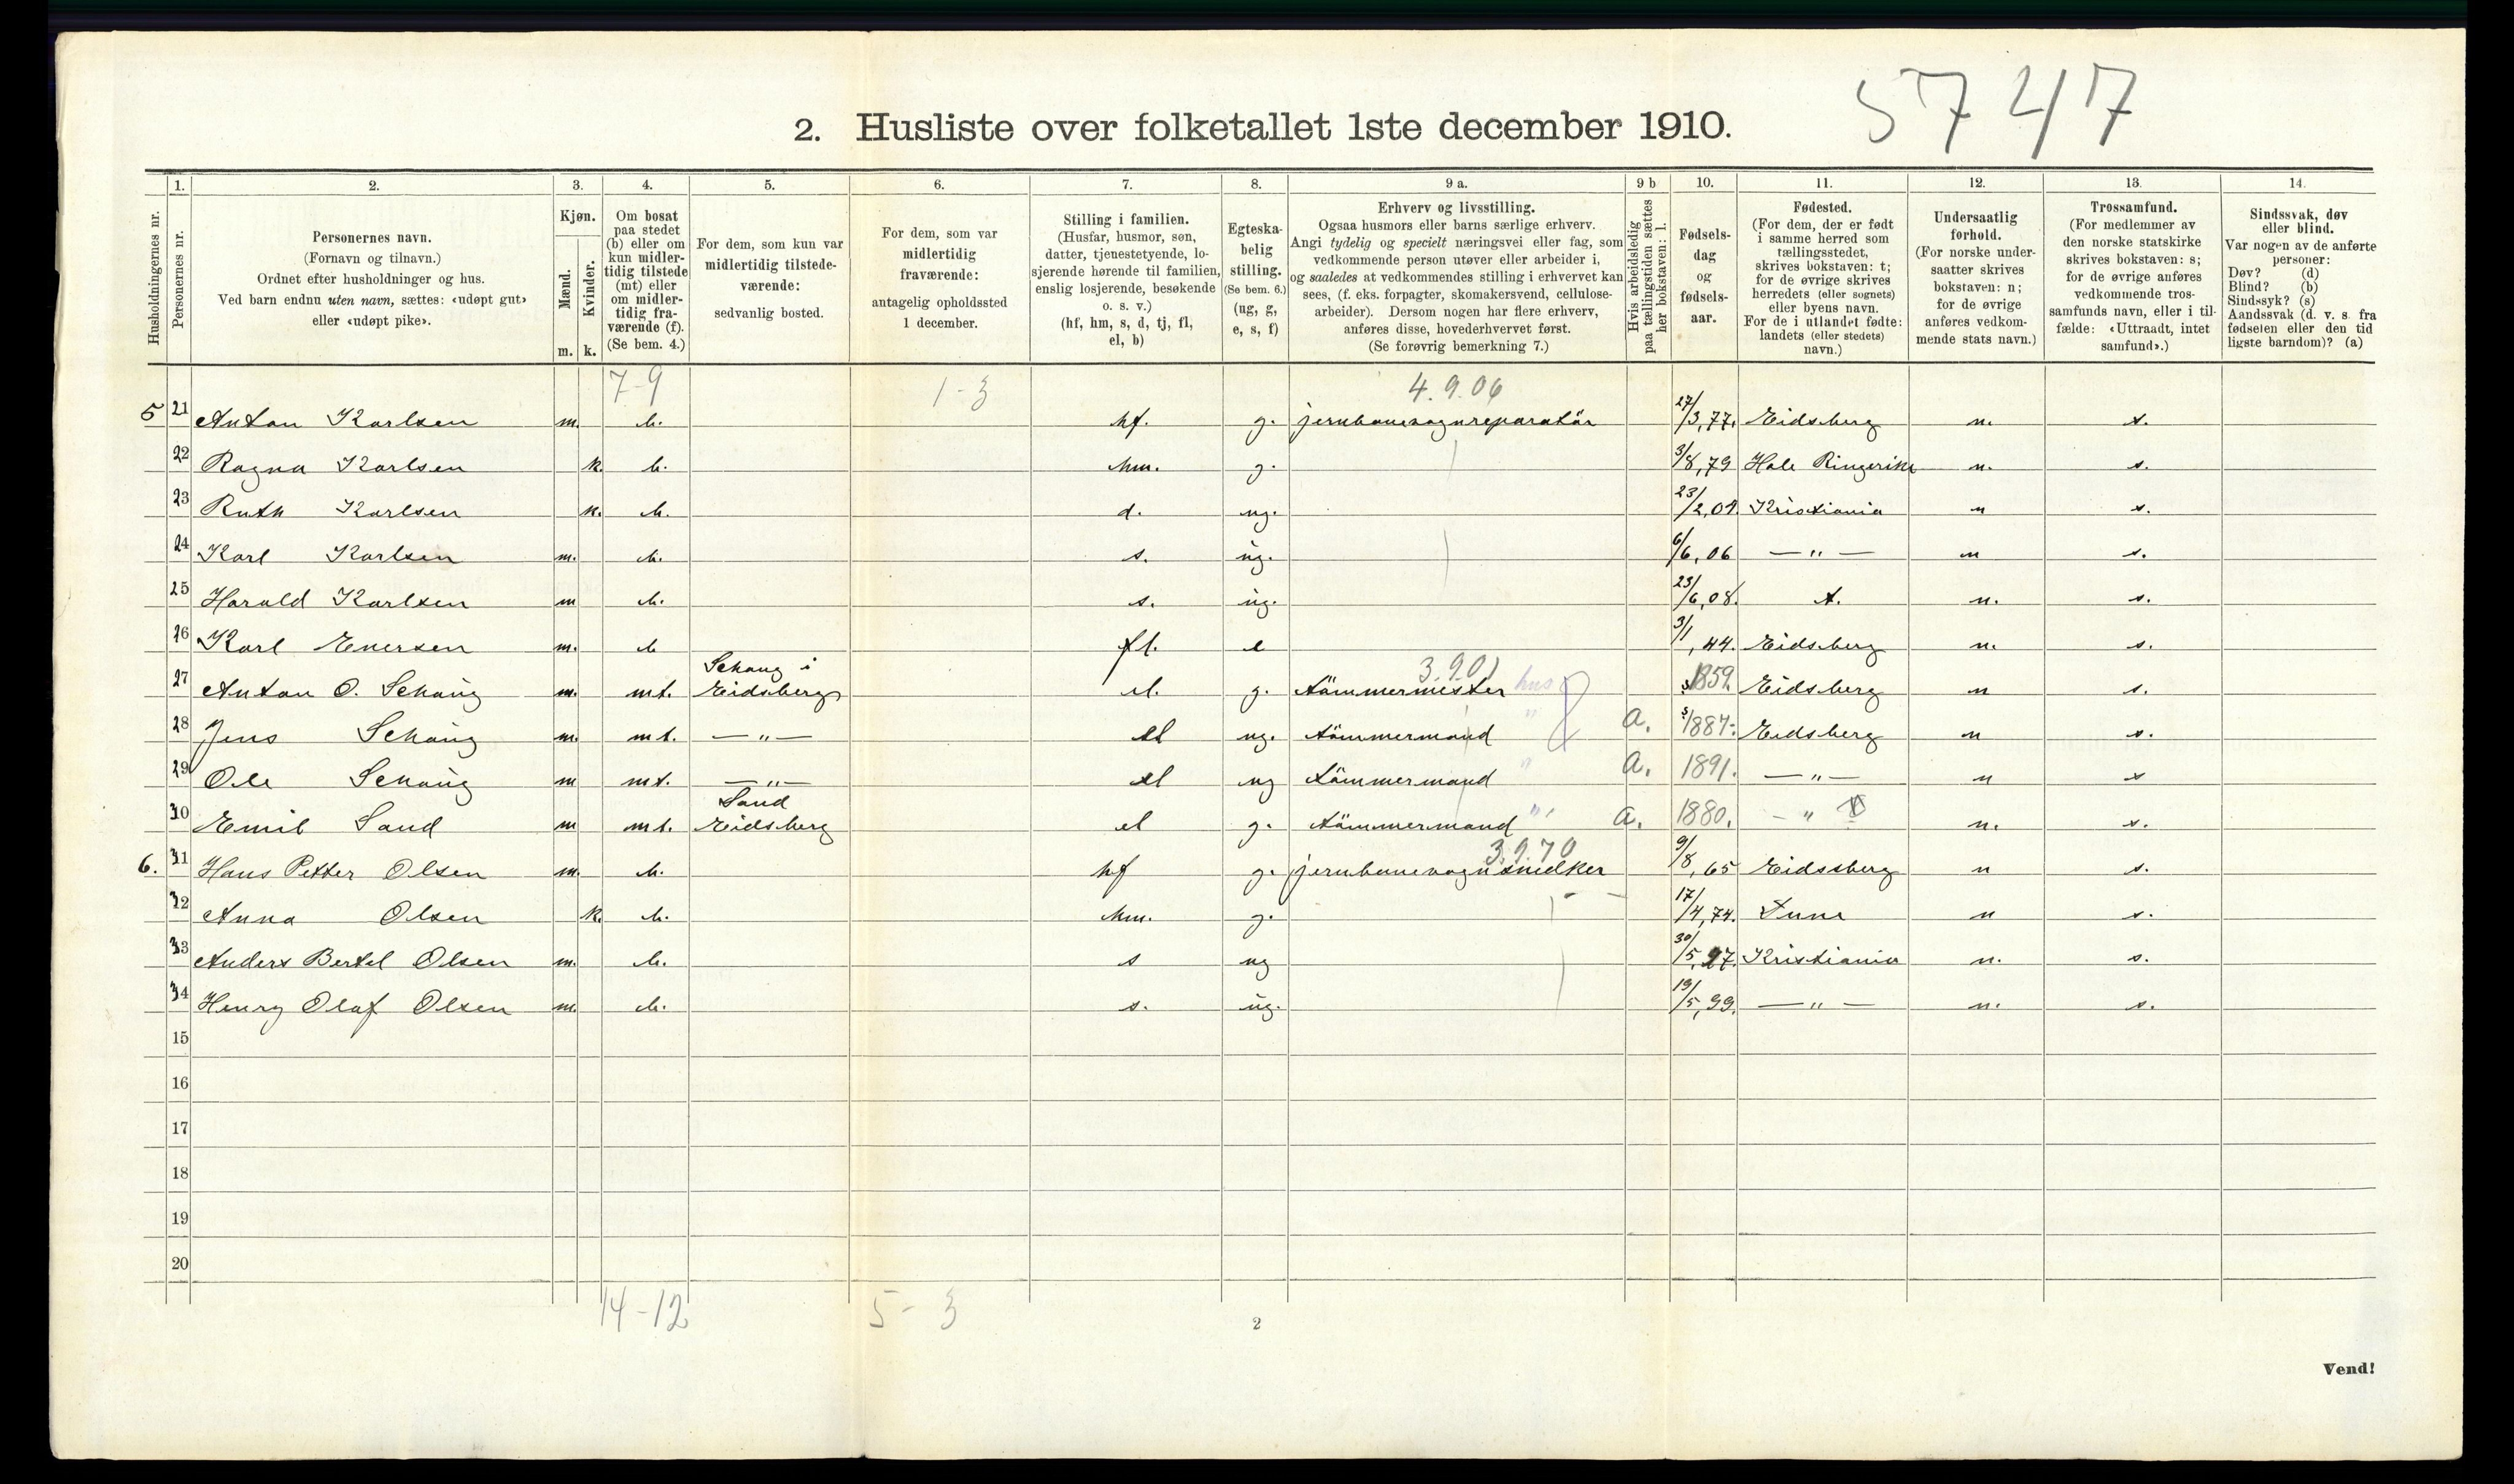 5747
2. Husliste over folketallet 1ste december 1910.
Husholdningernes nr.
1. Personernes nr.
2. Personernes navn.
(Fornavn og tilnavn.)
Ordnet efter husholdninger og hus.
Ved barn endnu uten navn, sættes: «udøpt gut»
eller «udøpt pike».
3. Kjøn.
Mænd. m.
Kvinder. k.
4. Om bosat
paa stedet
(b) eller om
kun midler-
tidig tilstede
(mt) eller
om midler-
tidig fra-
værende (f).
(Se bem. 4.)
5. For dem, som kun var
midlertidig tilstede-
værende:
sedvanlig bosted.
6. For dem, som var
midlertidig
fraværende:
antagelig opholdssted
1 december.
7. Stilling i familien.
(Husfar, husmor, søn,
datter, tjenestetyende, lo-
sjerende hørende til familien,
enslig losjerende, besøkende
o. s. v.)
(hf, hm, s, d, tj, fl,
el, b)
8. Egteska-
belig
stilling.
(Se bem. 6.)
(ug, g,
e, s, f)
9 a. Erhverv og livsstilling.
Ogsaa husmors eller barns særlige erhverv.
Angi tydelig og specielt næringsvei eller fag, som
vedkommende person utøver eller arbeider i,
og saaledes at vedkommendes stilling i erhvervet kan
sees, (f. eks. forpagter, skomakersvend, cellulose-
arbeider). Dersom nogen har flere erhverv,
anføres disse, hovederhvervet først.
(Se forøvrig bemerkning 7.)
9 b Hvis arbeidsledig
paa tællingstiden sættes
her bokstaven: l.
10. Fødsels-
dag
og
fødsels-
aar.
11. Fødested.
(For dem, der er født
i samme herred som
tællingsstedet,
skrives bokstaven: t;
for de øvrige skrives
herredets (eller sognets)
eller byens navn.
For de i utlandet fødte:
landets (eller stedets)
navn.)
12. Undersaatlig
forhold.
(For norske under-
saatter skrives
bokstaven: n;
for de øvrige
anføres vedkom-
mende stats navn.)
13. Trossamfund.
(For medlemmer av
den norske statskirke
skrives bokstaven: s;
for de øvrige anføres
vedkommende tros-
samfunds navn, eller i til-
fælde: «Uttraadt, intet
samfund».)
14. Sindssvak, døv
eller blind.
Var nogen av de anførte
personer:
Døv? (d)
Blind? (b)
Sindssyk? (s)
Aandssvak (d. v. s. fra
fødselen eller den tid
ligste barndom)? (a)
7-9 1-3 4.9.06
5 21 Anton Karlsen m. b. hf. g. jernbanevognreparatör 27/3,77. Eidsberg n. s.
22 Ragna Karlsen k. b. hm. g. 3/8,79 Hole Ringerike n. s.
23 Ruth Karlsen k. b. d. ug. 23/2,04. Kristiania n s.
24 Karl Karlsen m. b. s. ug. 6/6,06 —"— n s.
25 Harald Karlsen m b. s. ug. 23/6,08. t. n. s.
26 Karl Enersen m. b fl. e 3/1,44. Eidsberg n. s.
Schaug i 3.901
27 Anton O. Schaug m. mt. Eidsberg el. g. tömmermester hus 1859. Eidsberg n s.
28 Jens Schaug m. mt. —"— el ug. tömmermand " a. 1887. Eidsberg n s.
29 Ole Schaug m mt. —"— el ug tömmermand " a. 1891. —"— n s
Sand
30 Emil Sand m mt. Eidsberg el g. tömmermand " a. 1880. —" n. s.
3.9.70
6. 31 Hans Petter Olsen m. b. hf g. jernbanevognsnedker 9/8,65 Eidsberg n s.
32 Anna Olsen k. b. hm. g. 17/4,74. Tune n s.
33 Anders Bertel Olsen m. b. s ug 30/5,97. Kristiania n. s.
34 Henry Olaf Olsen m. b. s. ug. 19/5,99. —"— n. s.
15
16
17
18
19
20
14-12 5-3
2
Vend!